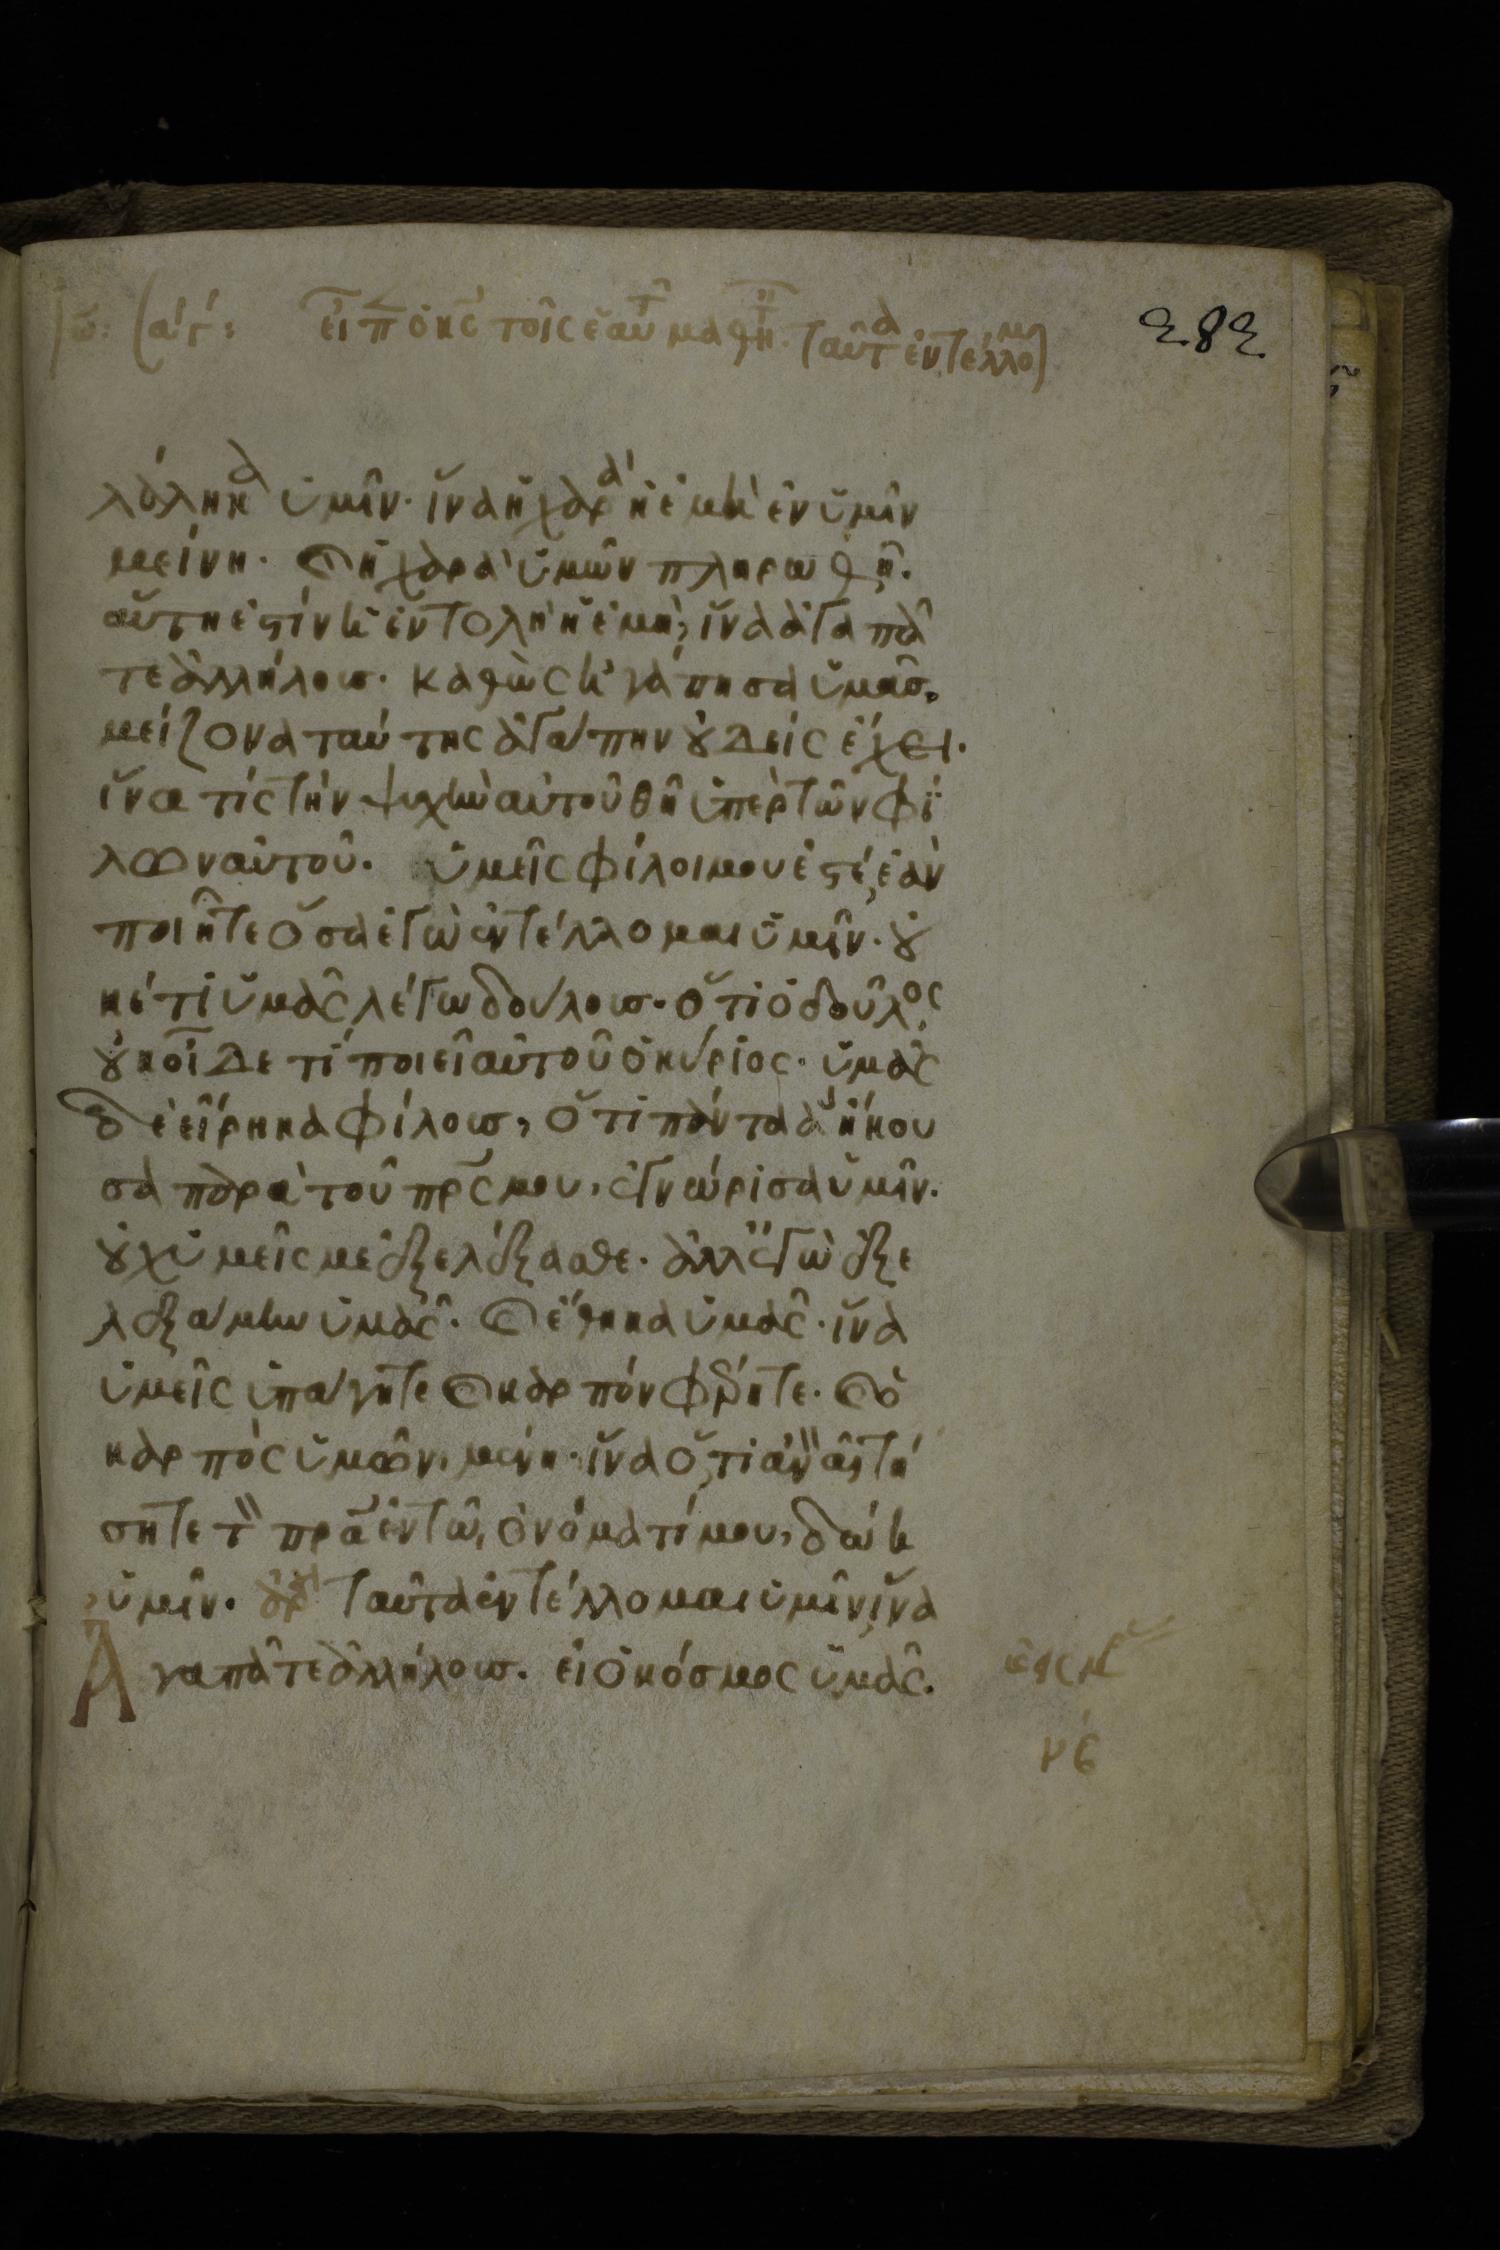 εἶπ ὁ κς τοῖς ἑαυτ μαθη. ταῦτα ἐντέλλομ 282
λάληκα ὑμῖν. ἵνα ἡ χαρὰ ἡ ἐμὴ ἐν ὑμῖν
μείνη. καὶ ἡ χαρὰ ὑμῶν πληρωθῆ.
αὕτη ἐστὶν ἡ ἐντολὴ ἡ ἐμὴ, ἵνα ἀγαπᾶ
τε ἀλλήλους. καθὼς ἠγάπησα ὑμᾶς.
μείζονα ταύτης ἀγάπην οὐδεὶς ἔχει.
ἵνα τίς τὴν ψυχὴν αὐτοῦ θῆ ὑπὲρ τῶν φί
λων αὐτοῦ. ὑμεῖς φίλοι μου ἐστέ, ἐὰν
ποιῆτε ὅσα ἐγὼ ἐντέλλομαι ὑμῖν. οὐ
κέτι ὑμᾶς λέγω δούλους. ὅτι ὁ δοῦλος
οὐκ οἶδε τί ποιεῖ αὐτοῦ ὁ κύριος. ὑμᾶς
δὲ εἴρηκα φίλους, ὅτι πάντα ἃ ἤκου
σα παρὰ τοῦ πρς μου, ἐγνώρισα ὑμῖν.
οὐχ ὑμεῖς με ἐξελέξασθε. ἀλλ' ἐγὼ ἐξε
λεξάμην ὑμᾶς. καὶ ἔθηκα ὑμᾶς. ἵνα
ὑμεῖς ὑπάγητε καὶ καρπὸν φέρητε. καὶ ὁ
καρπὸς ὑμῶν, μένη. ἵνα ὅ,τι ἂν αἰτή
σητε τὸν πρα ἐν τῶ, ὀνόματί μου, δώη
ὑμῖν. ἀρχ ταῦτα ἐντέλλομαι ὑμῖν, ἵνα
ἀγαπᾶτε ἀλλήλους. εἰ ὁ κόσμος ὑμᾶς.